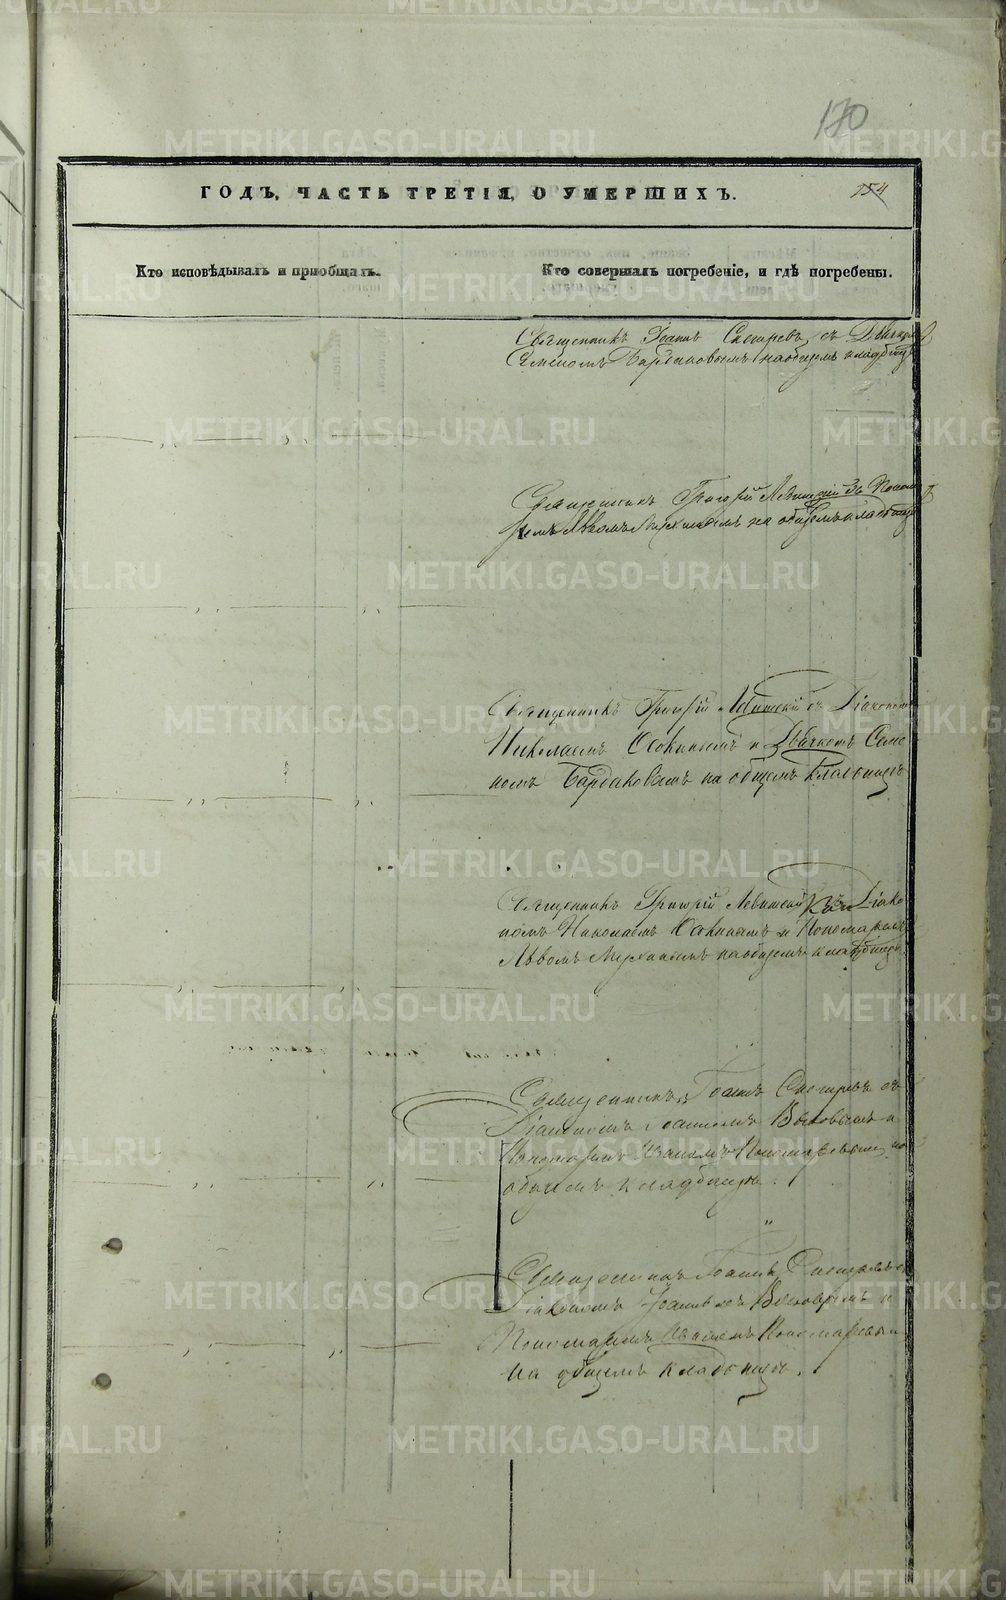 170
ГОДЪ, ЧАСТЬ ТРЕТІЯ, О УМЕРШИХЪ.
154
Кто исповѣдывалъ и пріобщалъ.
Кто совершалъ погребеніе, и гдѣ погребены.
Священникъ Іоаннъ Снегирев съ
Семеномъ Бардаковымъ на общемъ кладбищѣ
Священникъ Григорій Левитскій
Львомъ на общемъ кладбищѣ
Священникъ Григорій Левитскій съ Діакономъ
Николаемъ Осокинымъ и Дьячкомъ Семе
номъ Бардаковымъ на общемъ кладбищѣ
Священникъ Григорій Левитскій съ Діако
номъ Николаемъ Осокинымъ и Пономаремъ
Львомъ на общемъ кладбищѣ
Священникъ Іоаннъ Снегиревъ съ
Діакономъ Іоанномъ и
Пономаремъ Иваномъ Пономаревымъ на
общемъ кладбищѣ.
Священникъ Іоаннъ Снегиревъ съ
Діакономъ Іоанномъ и
Пономаремъ Иваномъ Пономаревым
на общемъ кладбищѣ.
METRIKI.GASO-URAL.RU